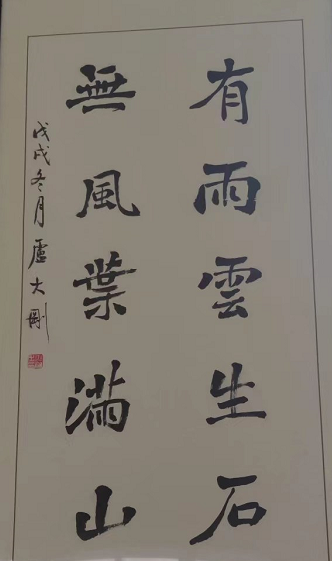 有雨雲生石
無風葉滿山
戊戌冬月盧大剛